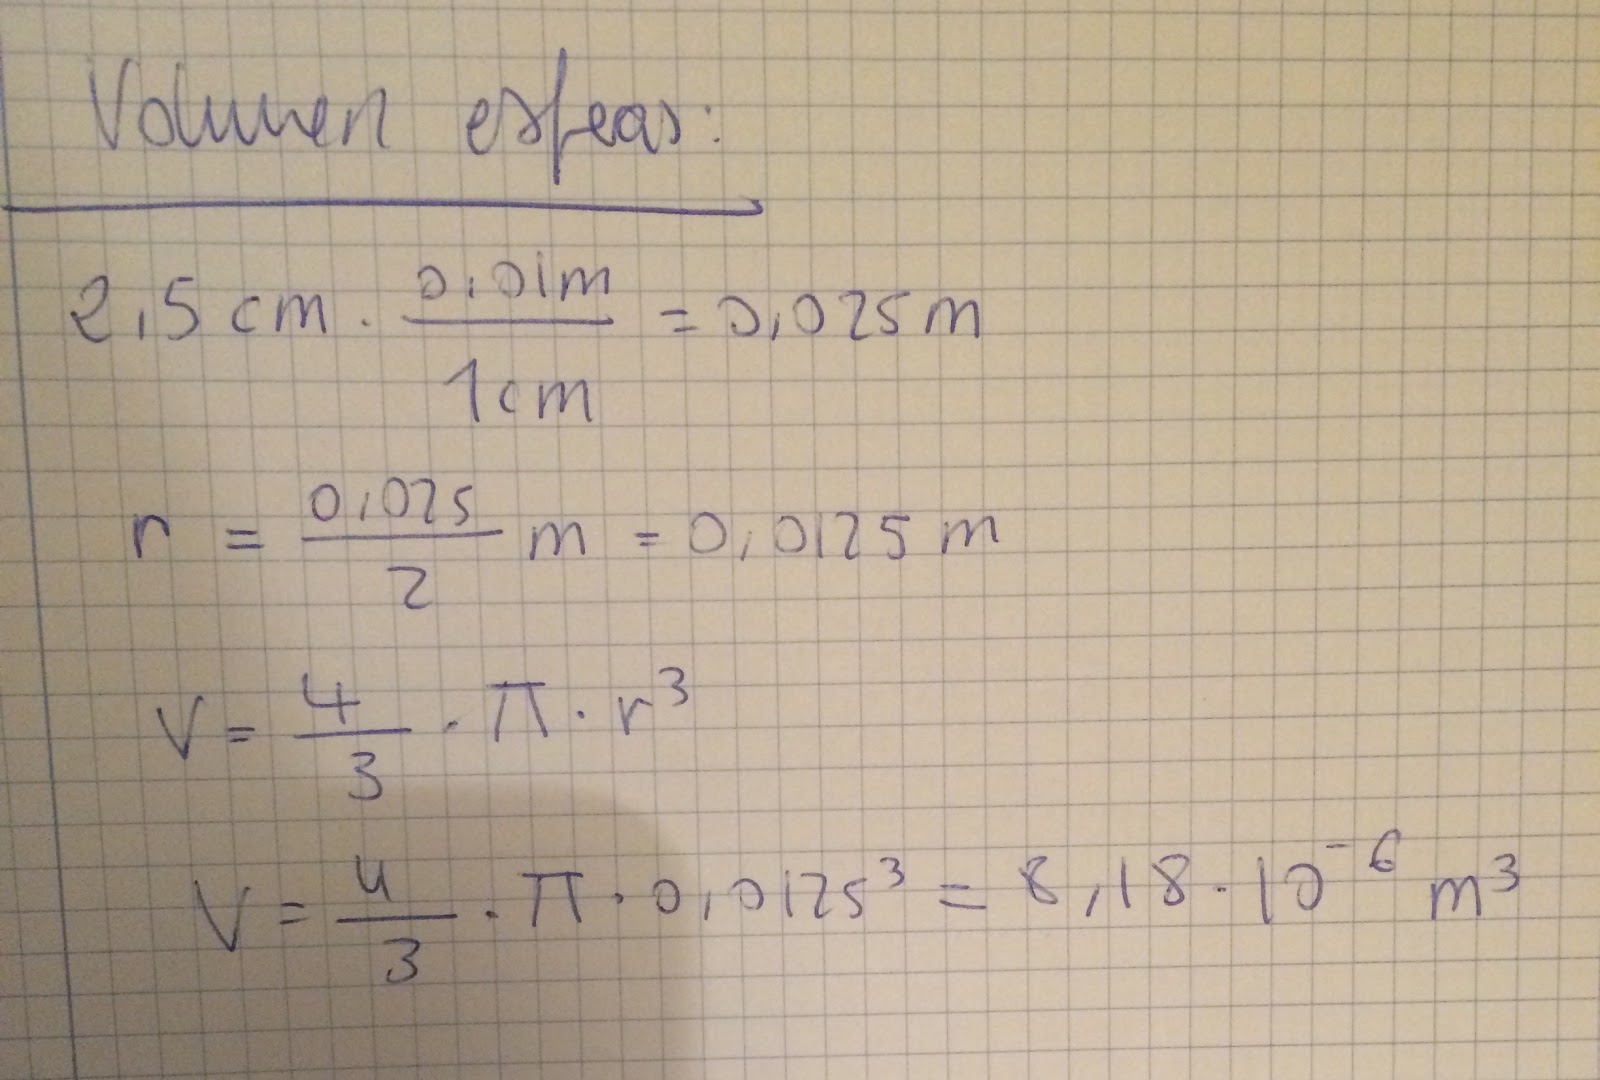 Volumen esfeas:
2,5 cm · 0,01m / 1cm = 0,025 m
r = 0,025 / 2 m = 0,0125 m
V = 4 / 3 · π · r³
V = 4 / 3 · π · 0,0125³ = 8,18 · 10⁻⁶ m³